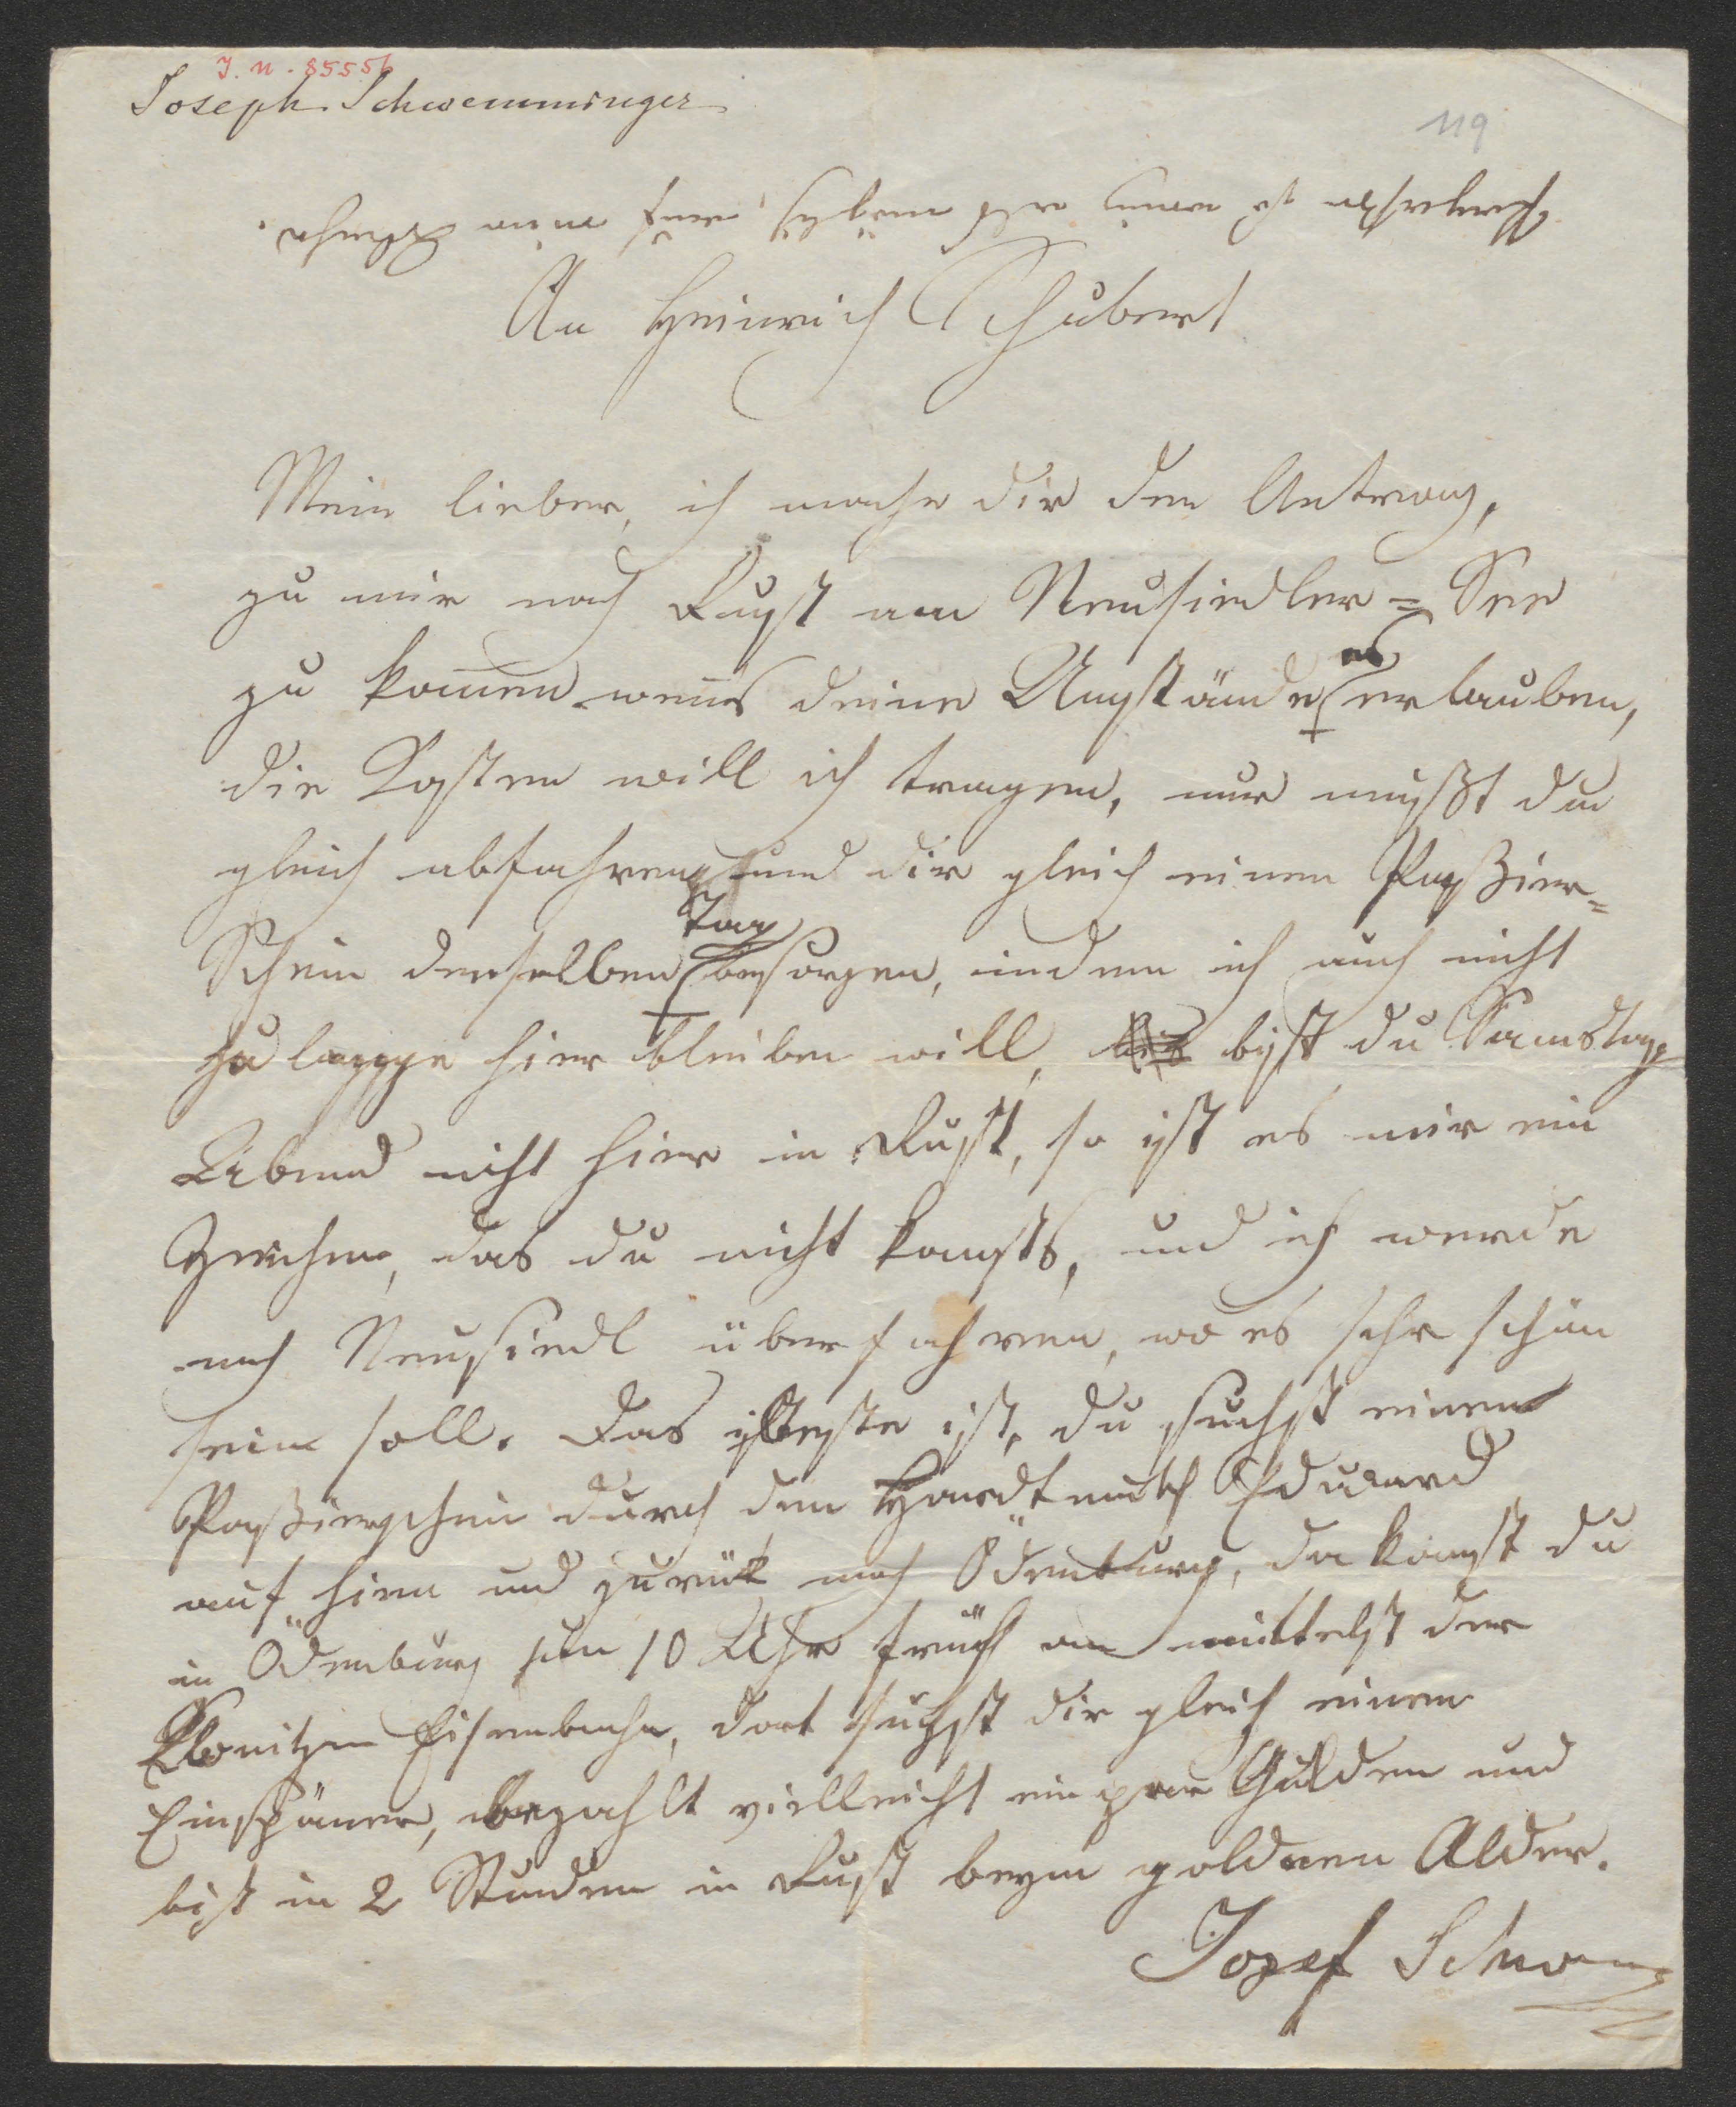 J. N. 85556
Joseph Schwemminger
119
An Heinrich Schubert
Mein lieber, ich mache dir den Antrag,
zu mir nach Rust am Neusiedler=See
zu kom̄en wen̄s deine Umstände es erlauben,
die Kosten will ich tragen, nur mußt du
gleich abfahren und dir gleich einen Paßier=
Schein denselben Tag besorgen, indem ich auch nicht
zu lange hier bleiben will, bist du Samstag
Abend nicht hier in Rust, so ist es mir ein
Zeichen, das du nicht komst, und ich werde
nach Neusiedl überfahren, wo es sehr schön
sein soll. Das beste ist, du suchst einen
Paßierschein durch den Hardtmuth Eduard
auf hien und zurück nach Ödenburg, da komst du
in Ödenburg um 10 Uhr früh an mittelst der
Eisenbahn, dort suchst dir gleich einen
Einspäner, bezahlt vielleicht ein paar Gulden und
bist in 2 Stunden in Rust beym goldnen Alder.
Josef Schwem